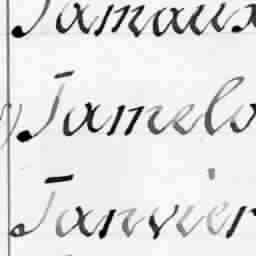 Jamaux
Jamels
Janvier